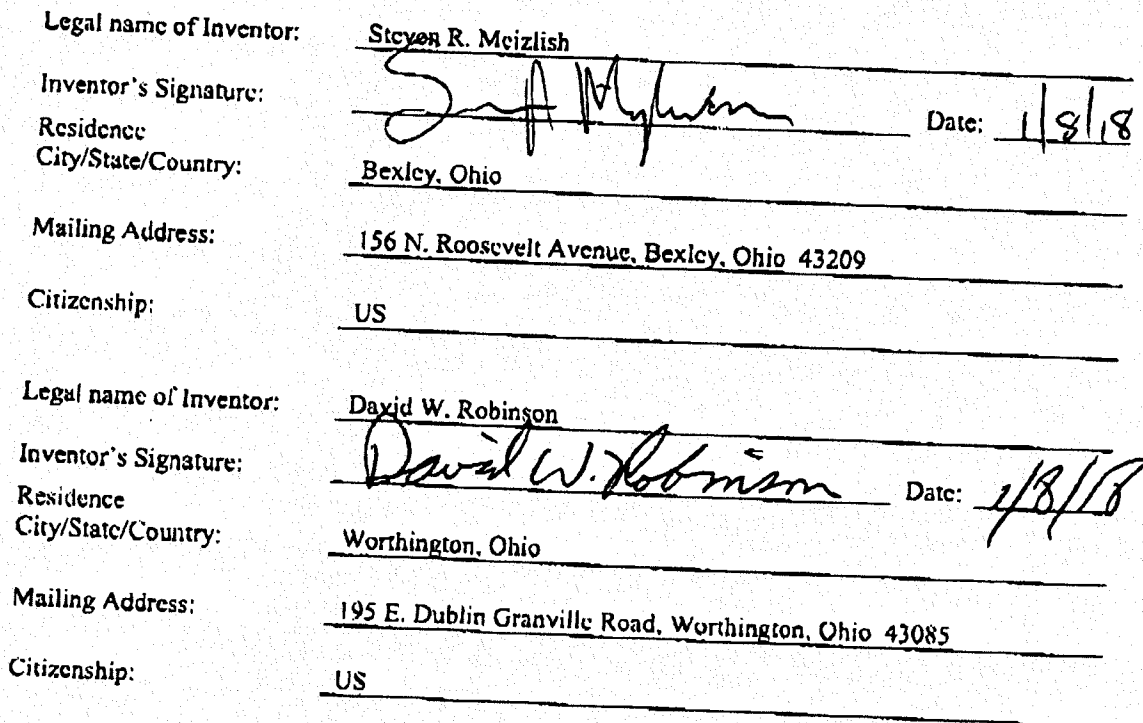 Legal name of Inventor: Steven R. Meizlish
Inventor's Signature: Date: 1/8/18
Residence
City/State/Country: Bexley, Ohio
Mailing Address: 156 N. Roosevelt Avenue, Bexley, Ohio 43209
Citizenship: US
Legal name of Inventor: David W. Robinson
Inventor's Signature: David W. Robinson Date: 1/8/18
Residence
City/State/Country: Worthington, Ohio
Mailing Address: 195 E. Dublin Granville Road, Worthington, Ohio 43085
Citizenship: US